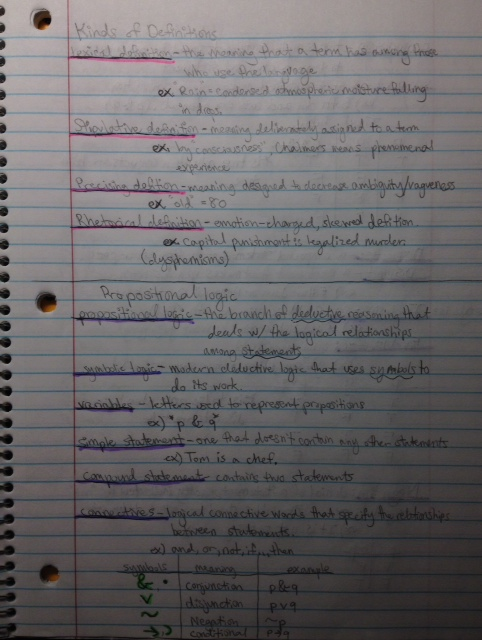 Kinds of Definitions
Lexical definition - the meaning that a term has among those
who use the language
ex. Rain = condensed atmospheric moisture falling
in drops.
Stipulative definition - meaning deliberately assigned to a term
ex. by "consciousness", Chalmers means phenomenal
experience
Precising defition - meaning designed to decrease ambiguity/vagueness
ex. "old" = 80
Rhetorical definition - emotion-charged, skewed defition.
ex. capital punishment is legalized murder.
(dysphemisms)
Propositional logic
propositional logic - the branch of deductive reasoning that
deals w/ the logical relationships
among statements
symbolic logic - modern deductive logic that uses symbols to
do its work.
variables - letters used to represent propositions
ex) "p & q"
simple statement - one that doesn't contain any other statements
ex) Tom is a chef.
compound statement contains two statements
connectives - logical connective words that specify the relationships
between statements.
ex) and, or, not, if... then
symbols meaning example
& · conjunction p & q
v disjunction p v q
~ Negation ~p
→ conditional p→q